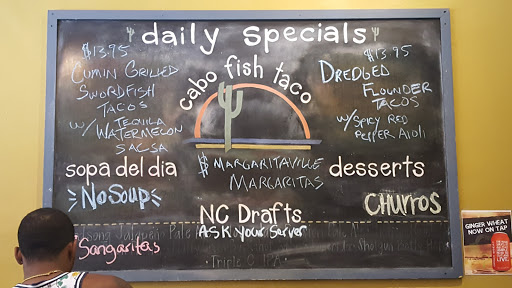 daily specials
$13.95
Cumin Grilled
Swordfish
Tacos
w/ Tequila
Watermelon
Salsa
cabo fish taco
$13.95
Dredged
Flounder
Tacos
w/ Spicy Red
Pepper Aioli
sopa del dia
No Soup
$ Margaritaville
Margaritas
desserts
Churros
NC Drafts
Ask Your Server
Sangaritas
Pale
Triple C IPA
GINGER WHEAT
NOW ON TAP